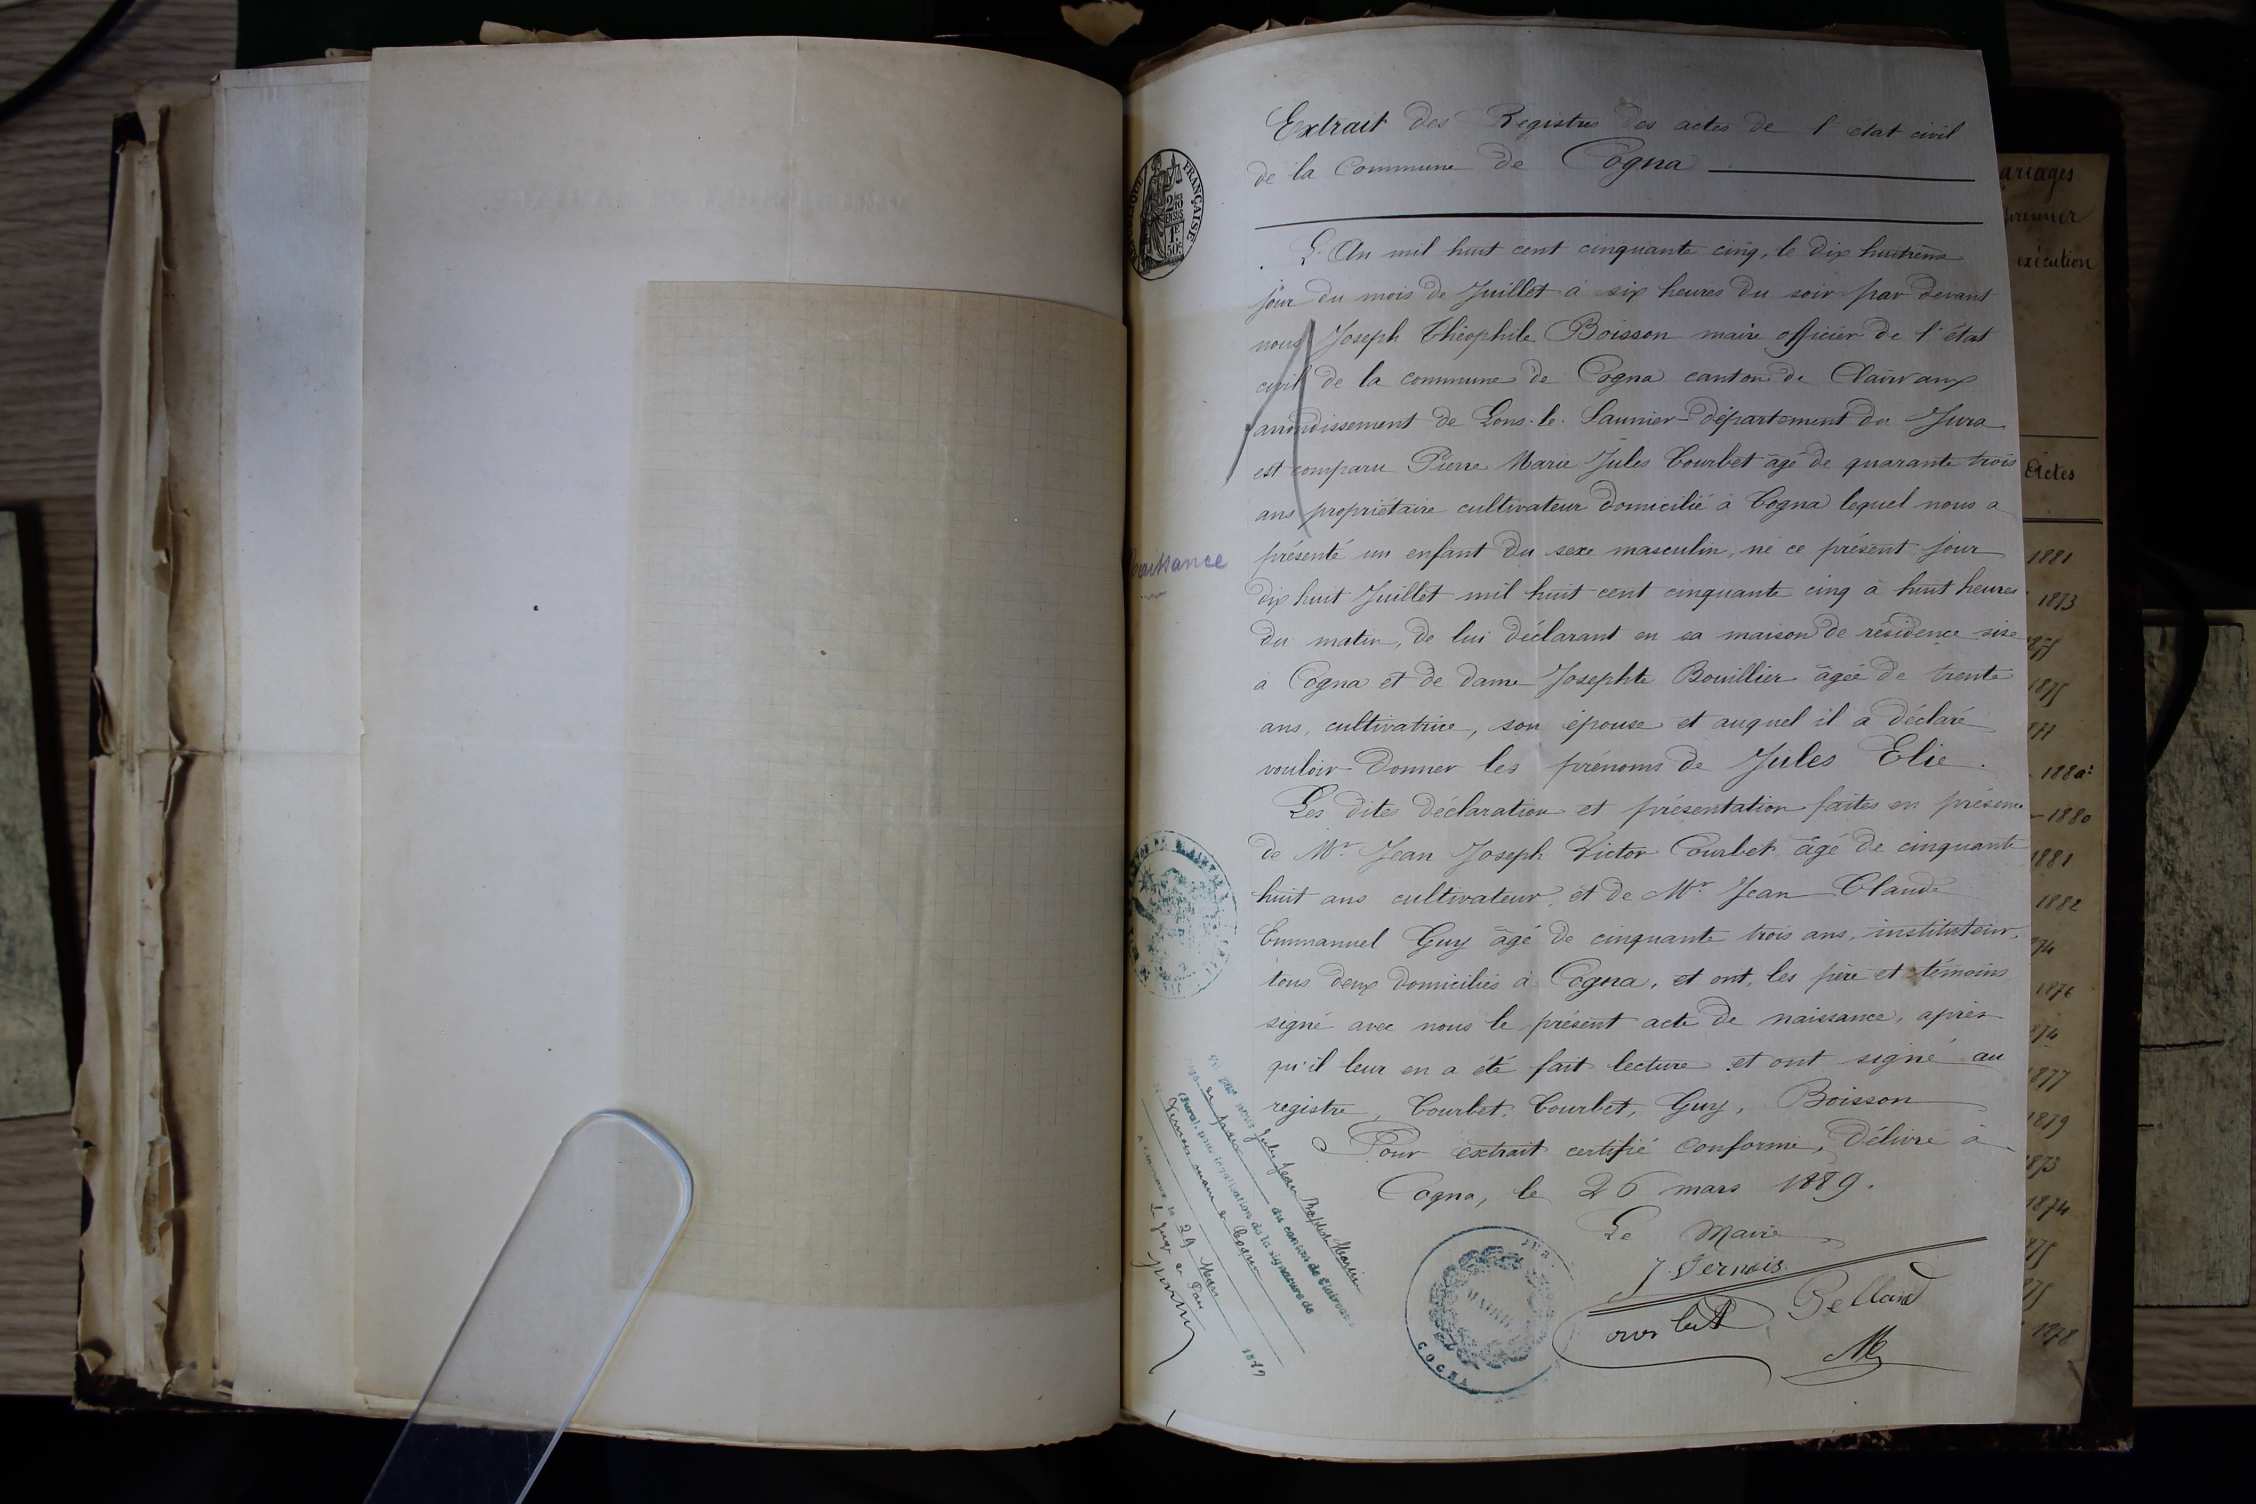 Extrait des Registres des actes de l'état civil
de la Commune de Cogna
FRANÇAISE
L'An mil huit cent cinquante cinq, le dix huitième
jour du mois de Juillet à six heures du soir par devant
nous Joseph Théophile Boisson maire officier de l'état
civil de la commune de Cogna canton de Clairvaux
arrondissement de Lons-le-Saunier département du Jura
est comparu Pierre Marie Jules Courbet âgé de quarante trois
ans propriétaire cultivateur domicilié à Cogna lequel nous a
présenté un enfant du sexe masculin, né ce présent jour
Naissance
dix huit Juillet mil huit cent cinquante cinq à huit heures
du matin, de lui déclarant en sa maison de résidence sise
à Cogna et de dame Josephte Bouillier âgée de trente
ans, cultivatrice, son épouse et auquel il a déclaré
vouloir donner les prénoms de Jules Elie.
Les dites déclaration et présentation faites en présence
de Mr Jean Joseph Victor Courbet âgé de cinquante
huit ans cultivateur, et de Mr Jean Claude
Emmanuel Guy âgé de cinquante trois ans, instituteur,
tous deux domiciliés à Cogna, et ont, les père et témoins
signé avec nous le présent acte de naissance, après
qu'il leur en a été fait lecture et ont signé au
registre, Courbet, Courbet, Guy, Boisson
Pour extrait certifié conforme, Délivré à
Cogna, le 26 mars 1889.
Le Maire
J. Vernois
Vu par nous Jules Jean Baptiste Martin
juge de paix du canton de Clairvaux
(Jura), pour légalisation de la signature de
Vernois maire de Cogna
29 Mars 1889
Le Juge de Paix
MAIRIE
COGNA
ariages
premier
exécution
Actes
1881
1873
1875
1880
1881
1882
1876
1877
1879
1873
1874
1878